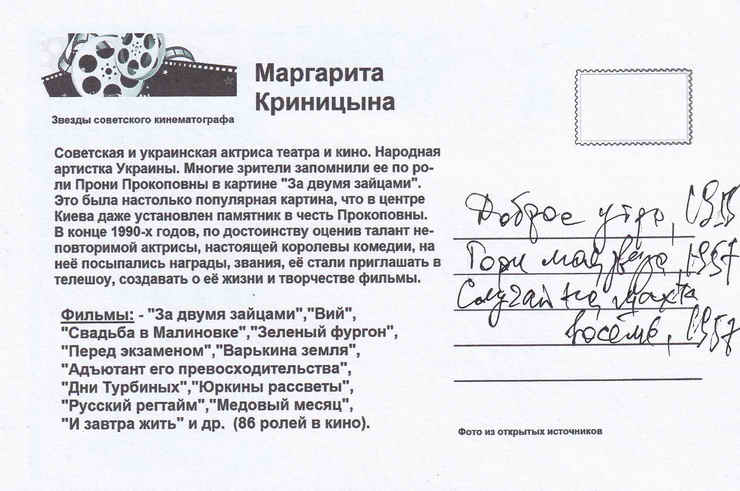 Маргарита
Криницына
Звезды советского кинематографа
Советская и украинская актриса театра и кино. Народная
артистка Украины. Многие зрители запомнили ее по ро-
ли Прони Прокоповны в картине "За двумя зайцами".
Это была настолько популярная картина, что в центре
Киева даже установлен памятник в честь Прокоповны.
В конце 1990-х годов, по достоинству оценив талант не-
повторимой актрисы, настоящей королевы комедии, на
неё посыпались награды, звания, её стали приглашать в
телешоу, создавать о её жизни и творчестве фильмы.
Фильмы: - "За двумя зайцами","Вий",
"Свадьба в Малиновке","Зеленый фургон",
"Перед экзаменом","Варькина земля",
"Адъютант его превосходительства",
"Дни Турбиных","Юркины рассветы",
"Русский регтайм","Медовый месяц",
"И завтра жить" и др. (86 ролей в кино).
Доброе утро, 1955
Гори моя звезда, 1957
Случай на шахте
восемь, 1957
Фото из открытых источников